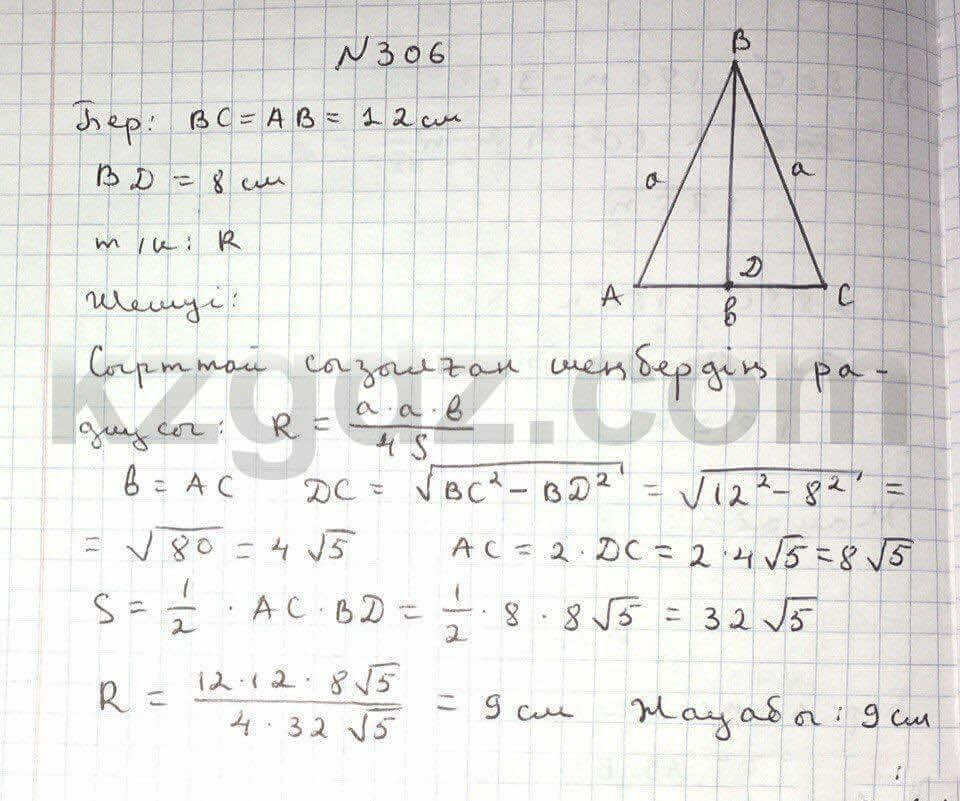 N306
Бер: BC = AB = 12 см
BD = 8 см
т/к: R
Шешуі:
Сырттай сызылған шеңбердің ра-
диусы: R = a·a·b / 4S
b = AC DC = √BC² - BD² = √12² - 8² =
= √80 = 4√5 AC = 2·DC = 2·4√5 = 8√5
S = 1/2 · AC · BD = 1/2 · 8 · 8√5 = 32√5
R = 12·12·8√5 / 4·32√5 = 9 см Жауабы: 9 см
B
a
a
A
D
C
b
kzgdz.com